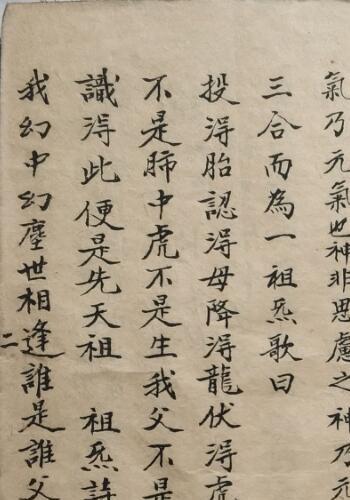 氣乃元氣也神非思慮之神乃元
三合而為一祖炁歌曰
投淂胎認淂母降淂龍伏淂虎
不是肺中虎不是生我父不是
識淂此便是先天祖 祖炁詩
我幻中幻塵世相逢誰是誰父
二